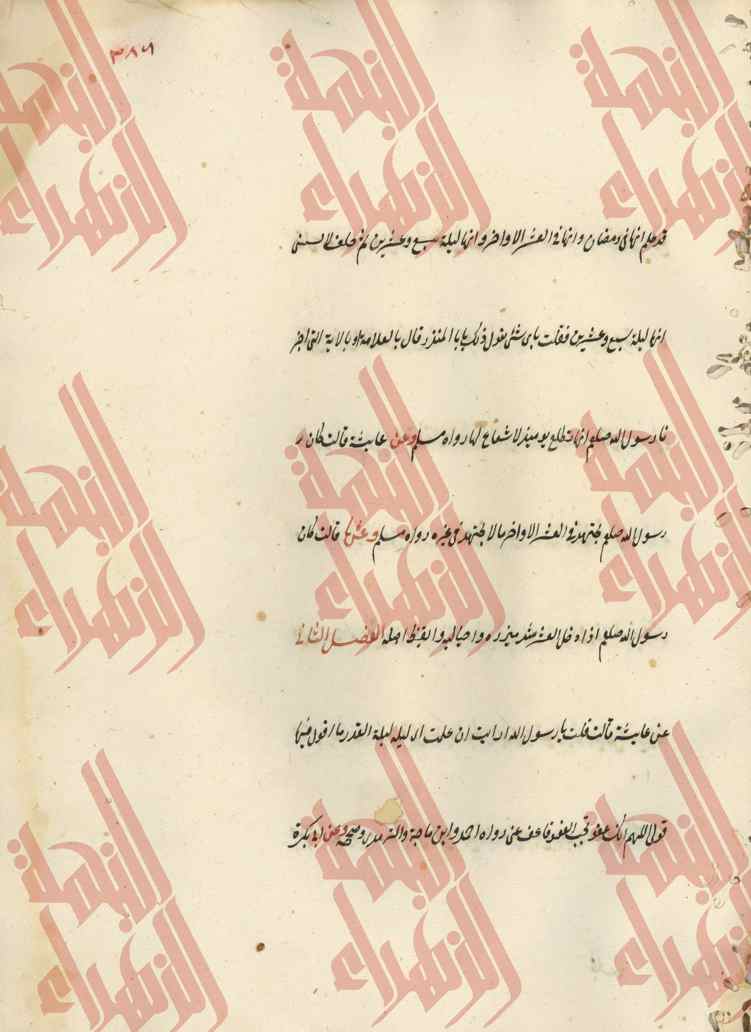 ٣٨٦
قد علم انها في رمضان وانها في العشر الاواخر وانها ليلة سبع وعشرين ثم حلف لا يستثني
انها ليلة سبع وعشرين فقلت باي شئ تقول ذلك يا با المنذر قال بالعلامة او بالاية التي اخبر
نا رسول الله صلعم انها تطلع يومئذ لا شعاع لها رواه مسلم وعن عايشة قالت كان
رسول الله صلعم يجتهد في العشر الاواخر ما لا يجتهد في غيره رواه مسلم وعنها قالت كان
رسول الله صلعم اذا دخل العشر شد ميزره واحيا ليله وايقظ اهله الفصل الثاني
عن عايشة قالت قلت يا رسول الله ارايت ان علمت اي ليلة ليلة القدر ما اقول فيها
قولي اللهم انك عفو تحب العفو فاعف عني رواه احمد وابن ماجة والترمذي وصححه وعن ابي بكرة
النبعة الزهراء